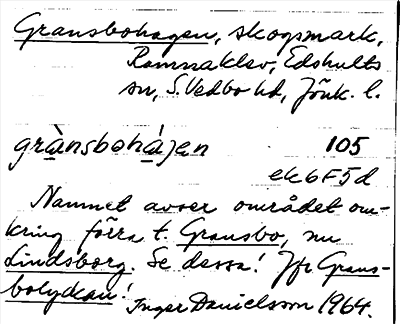 Gransbohagen, skogsmark,
Ramnaklev, Edshults
sn, S. Vedbo hd, Jönk. l.
grànsbohájen 105
ek 6F5d
Namnet avser området om-
kring förra t. Gransbo, nu
Lindsborg. Se dessa! Jfr Grans-
bolyckan!
Inger Danielsson 1964.